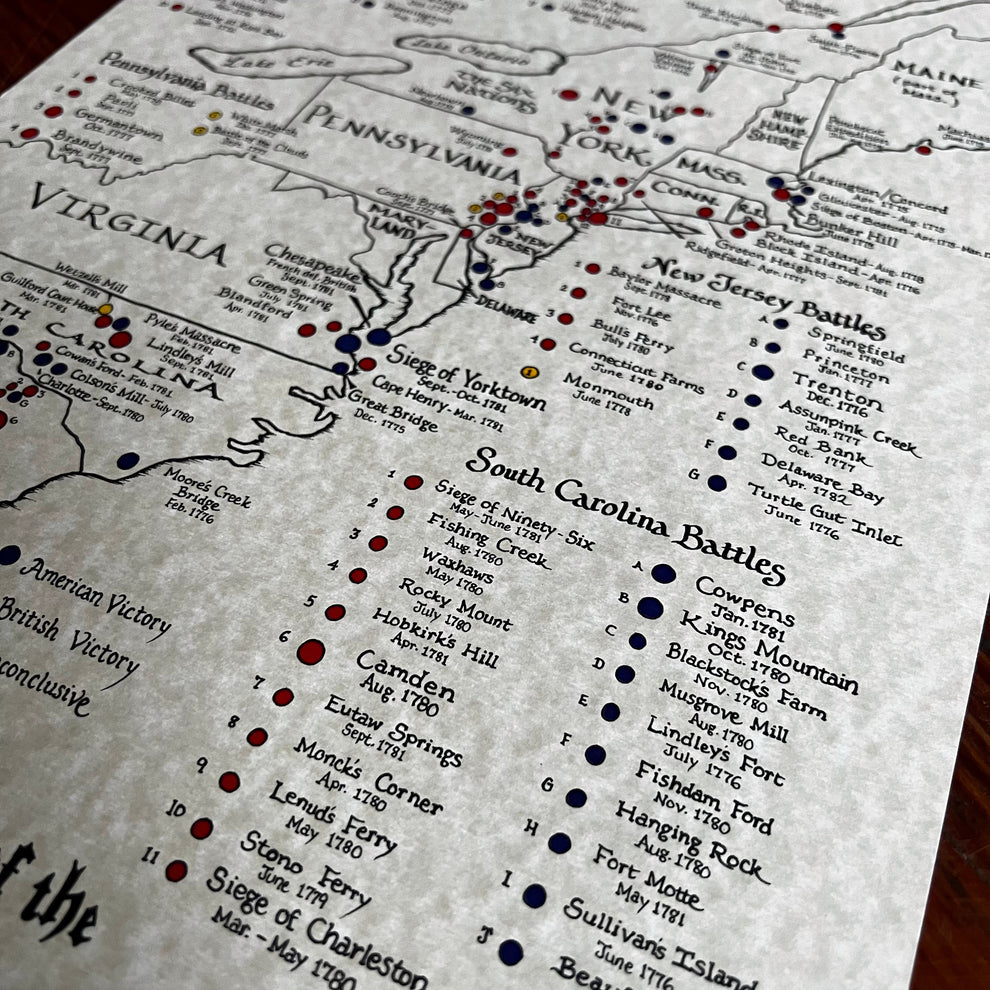 Lake Erie
Lake Ontario
The Six
Nations
MAINE
NEW
YORK
NEW
HAMP
SHIRE
MASS.
CONN.
R.I.
PENNSYLVANIA
MARY
LAND
NEW
JERSEY
DELAWARE
VIRGINIA
CAROLINA
Pennsylvania Battles
1
Crooked Billet
2
Paoli
3
Germantown
Oct. 1777
4
Brandywine
Sept. 1777
Lexington/Concord
Apr. 1775
Bunker Hill
June 1775
Rhode Island - Aug. 1778
Block Island - Apr. 1776
Groton Heights - Sept. 1781
Ridgefield - Apr. 1777
Chesapeake
French def. British
Sept. 1781
Green Spring
July 1781
Blandford
Apr. 1781
Wetzell's Mill
Mar. 1781
Guilford Court House
Mar. 1781
Pyle's Massacre
Feb. 1781
Lindley's Mill
Sept. 1781
Cowan's Ford - Feb. 1781
Colson's Mill - July 1780
Charlotte - Sept. 1780
Siege of Yorktown
Sept. - Oct. 1781
Cape Henry - Mar. 1781
Great Bridge
Dec. 1775
Moore's Creek
Bridge
Feb. 1776
New Jersey Battles
1
Baylor Massacre
Sept. 1778
2
Fort Lee
Nov. 1776
3
Bull's Ferry
July 1780
4
Connecticut Farms
June 1780
Monmouth
June 1778
A
Springfield
June 1780
B
Princeton
Jan. 1777
C
Trenton
Dec. 1776
D
Assunpink Creek
Jan. 1777
E
Red Bank
Oct. 1777
F
Delaware Bay
Apr. 1782
G
Turtle Gut Inlet
June 1776
South Carolina Battles
1
Siege of Ninety-Six
May - June 1781
2
Fishing Creek
Aug. 1780
3
Waxhaws
May 1780
4
Rocky Mount
July 1780
5
Hobkirk's Hill
Apr. 1781
6
Camden
Aug. 1780
7
Eutaw Springs
Sept. 1781
8
Monck's Corner
Apr. 1780
9
Lenud's Ferry
May 1780
10
Stono Ferry
June 1779
11
Siege of Charleston
Mar. - May 1780
A
Cowpens
Jan. 1781
B
Kings Mountain
Oct. 1780
C
Blackstock's Farm
Nov. 1780
D
Musgrove Mill
Aug. 1780
E
Lindley's Fort
July 1776
F
Fishdam Ford
Nov. 1780
G
Hanging Rock
Aug. 1780
H
Fort Motte
May 1781
I
Sullivan's Island
June 1776
J
American Victory
British Victory
of the